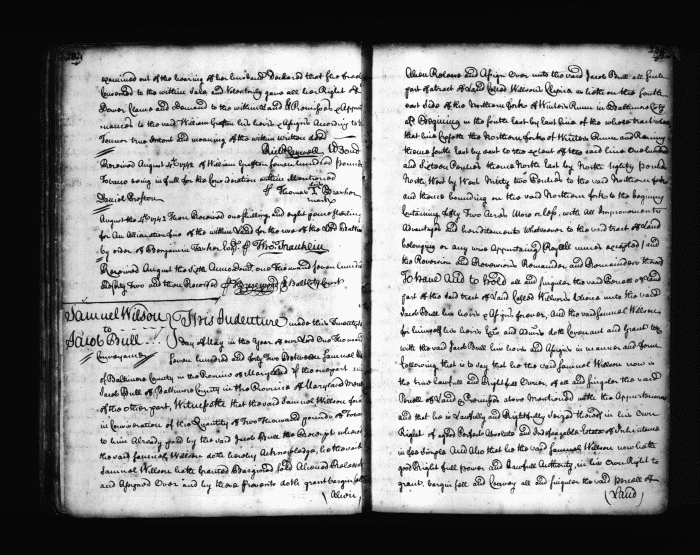 Examined out of the hearing of her husband Declared that she freely
Consented to the within Sale and Voluntarily gave all her Right of
Dower Claim and Demand to the within Land & Premisses
unto the said William Grafton his heirs & Assigns According to the
true Intent and meaning of the within written deed
Received August 4th 1742 of William Grafton seven hundred pounds
Tobacco being in full for the Consideration within Mentioned
Daniel Preston
Thomas Brashor
mark
August the 4th 1742 Then Received one shilling and eight pence sterling
for an Alienation fine of the within Land for the use of the Lord
by order of Benjamin Tasker Thos. Franklin
Received August the Sixth Anno Domini One Thousand Seven hundred
and forty Two and then Recorded
Samuel Wilson
to
Jacob Bull
Conveyance
This Indenture made this Twenty
Day of May in the Year of our Lord One Thousand
Seven hundred and forty Two Between Samuel
of Baltimore County in the Province of Maryland of the one part
Jacob Bull of Baltimore County in the Province of Maryland
of the other part, Witnesseth that the said Samuel Willson for
in Consideration of the Quantity of Two Thousand pounds of Tobacco
to him Already paid by the said Jacob Bull the Receipt whereof
the said Samuel Willson doth hereby Acknowledge, he the said
Samuel Willson hath Granted Bargained Sold Aliened Released
and Assigned Over and by these presents doth grant bargain sell
(Alien)
Alien Release and Assign Over unto the said Jacob Bull all that
part of a tract of Land Called Willson's on the South
east side of the Northern fork of Winters Runn in Baltimore County
Beginning in the South east by East line of the whole tract where
that line Crosseth the Northern fork of Winters Runn and Running
thence South east by east to the extent of the said line One hundred
and Sixteen Perches thence North east by North eighty perches
North West by West Ninety two Perches to the said Northern fork
and thence bounding on the said Northern fork to the beginning
Containing fifty Two Acres More or less, with all Improvements
Advantages and hereditaments Whatsoever to the said tract of Land
belonging or any wise Appertaining (Royall mines excepted) and
the Reversion and Reversions Remainder and Remainders thereof
To have And to hold all and singular the said Parcell of Land
part of the said tract of Land Called Willson's unto the said
Jacob Bull his heirs & Assigns forever, And the said Samuel Willson
for himself his heirs Exrs and Admrs doth Covenant and Grant to
with the said Jacob Bull his heirs and Assigns in manner and form
following that is to say that he the said Samuel Willson now is
the true lawfull and Rightfull Owner of all and singular the said
Parcell of Land & Premisses above Mentioned with the Appurtenances
and that he is Lawfully and Rightfully seized thereof in his Own
Right of a good Perfect Absolute and Indefeazable Estate of Inheritance
in fee Simple And Also that he the said Samuel Willson now hath
good Right full power and Lawfull Authority, in his Own Right to
grant, bargain sell and Convey all and singular the said parcell of
(Land)